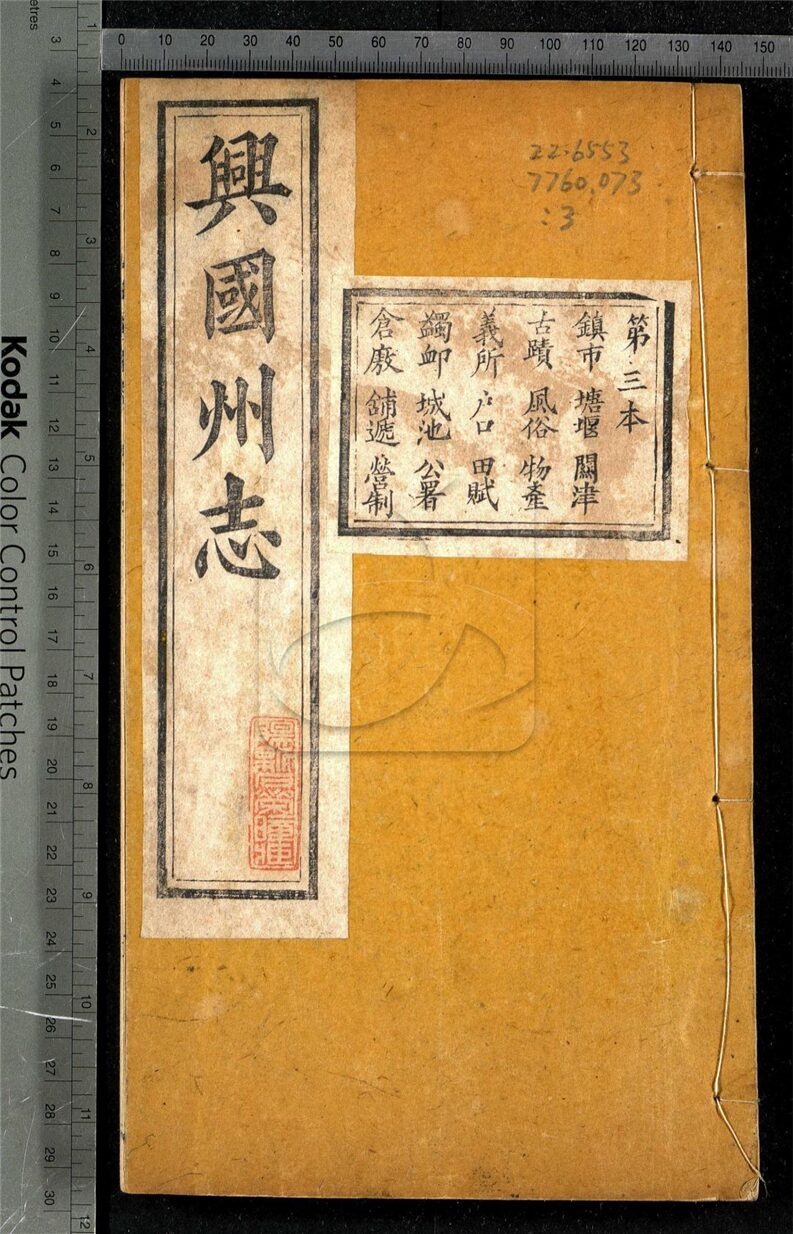 興國州志
第三本
鎮市 塘堰 關津
古蹟 風俗 物產
義所 户口 田賦
蠲卹 城池 公署
倉廒 舖遞 營制
22.6553
7760.073
:3
Kodak Color Control Patches
0 10 20 30 40 50 60 70 80 90 100 110 120 130 140 150
1 2 3 4 5 6 7 8 9 10 11 12
3 4 5 6 7 8 9 10 11 12 13 14 15 16 17 18 19 20 21 22 23 24 25 26 27 28 29 30